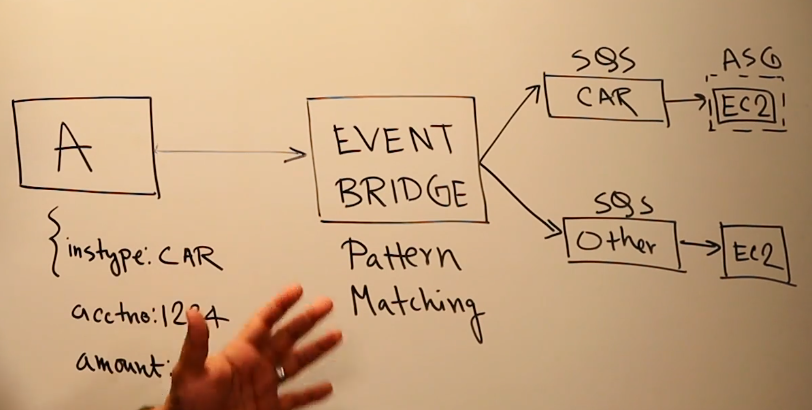 A
{instype: CAR
acctno: 1234
amount:
EVENT
BRIDGE
Pattern
Matching
SQS
CAR
ASG
EC2
SQS
Other
EC2